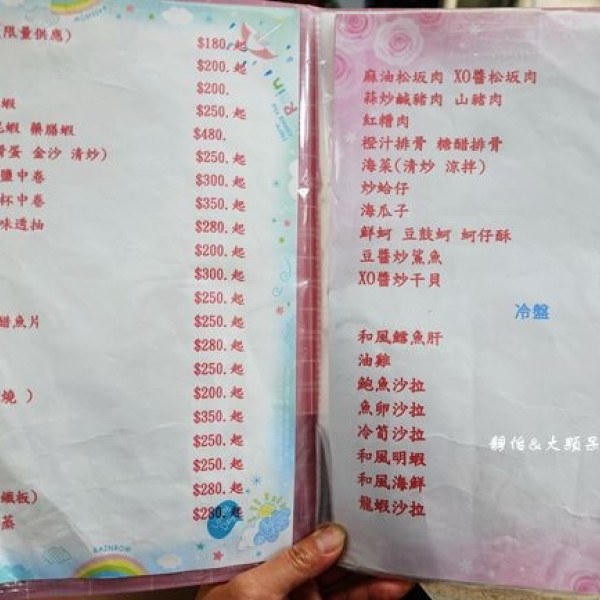 限量供應)
$180.起
$200.起
$200.
蝦 $250.起
蝦 藥膳蝦 $480.
蛋 金沙 清炒) $250.起
鹽中卷 $300.起
杯中卷 $350.起
味透抽 $280.起
$200.起
$300.起
$250.起
醋魚片 $250.起
$280.起
$250.起
燒 ) $200.起
$350.起
$250.起
$250.起
鐵板) $280.起
蒸 $280.起
RAINBOW
麻油松坂肉 XO醬松坂肉
蒜炒鹹豬肉 山豬肉
紅糟肉
橙汁排骨 糖醋排骨
海菜(清炒 涼拌)
炒蛤仔
海瓜子
鮮蚵 豆鼓蚵 蚵仔酥
豆醬炒鯊魚
XO醬炒干貝
冷盤
和風鱈魚肝
油雞
鮑魚沙拉
魚卵沙拉
冷筍沙拉
和風明蝦
和風海鮮
龍蝦沙拉